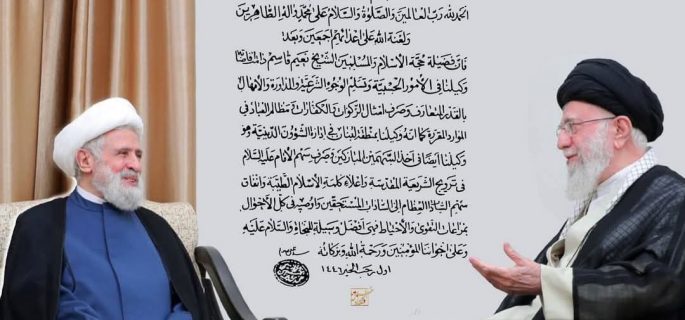 الحمد لله رب العالمين والصلوة والسلام على محمد وآله الطاهرين
ولعنة الله على اعدائهم اجمعين وبعد:
فان فضيلة حجة الاسلام والمسلمين الشيخ نعيم قاسم دامت افاضاته
وكيلنا في الأمور الحسبية وتسلم الوجوه الشرعية والمداورة والامهال
بالقدر المتعارف وصرف امثال الزكوات والكفارات ومظالم العباد في
الموارد المقررة كما انه وكيلنا في منطقة لبنان في ادارة الشؤون الدينية وهو
وكيلنا ايضا في اخذ السهمين المباركين وصرف سهم الأمام عليه السلام
في ترويج الشريعة المقدسة واعلاء كلمة الأسلام الطيبة وانفاق
سهم السادة العظام الى السادات المستحقين واوصيه في كل الأحوال
بمراعات التقوى والأحتياط فهي افضل وسيلة للنجاة والسلام عليه
وعلى اخواننا المؤمنين ورحمة الله وبركاته
اول رجب الخير ١٤٤٦